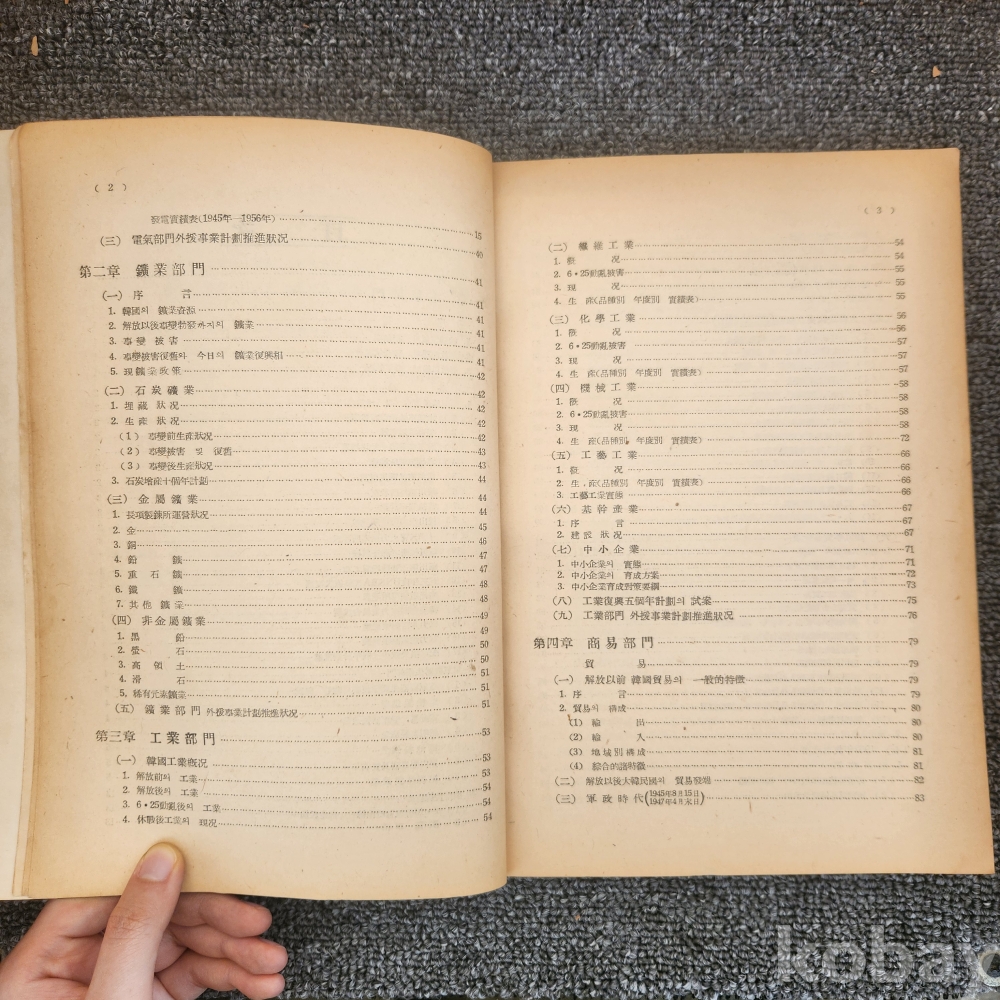 ( 2 )
發電實績表(1945年—1956年) 15
(三) 電氣部門外援事業計劃推進狀況 40
第二章 鑛業部門 41
(一) 序 言 41
1. 韓國의 鑛業資源 41
2. 解放以後事變勃發까지의 鑛業 41
3. 事變被害 41
4. 事變被害復舊와 今日의 鑛業復興相 41
5. 現鑛業政策 42
(二) 石炭礦業 42
1. 埋藏狀況 42
2. 生産狀況 42
(1) 事變前生産狀況 42
(2) 事變被害 및 復舊 43
(3) 事變後生産狀況 43
3. 石炭增産十個年計劃 44
(三) 金屬鑛業 44
1. 長項製鍊所運營狀況 44
2. 金 45
3. 銅 46
4. 鉛 鑛 47
5. 重石鑛 47
6. 鐵 鑛 48
7. 其他鑛業 48
(四) 非金屬鑛業 49
1. 黑 鉛 49
2. 螢 石 50
3. 高領土 50
4. 滑 石 51
5. 稀有元素鑛業 51
(五) 鑛業部門 外援事業計劃推進狀況 51
第三章 工業部門 53
(一) 韓國工業槪況 53
1. 解放前의 工業 53
2. 解放後의 工業 54
3. 6•25動亂後의 工業 54
4. 休戰後工業의 現況 54
( 3 )
(二) 纖維工業 54
1. 槪 況 54
2. 6•25動亂被害 55
3. 現 況 55
4. 生 産(品種別 年度別 實績表) 55
(三) 化學工業 56
1. 槪 況 56
2. 6•25動亂被害 57
3. 現 況 57
4. 生 産(品種別 年度別 實績表) 57
(四) 機械工業 58
1. 槪 況 58
2. 6•25動亂被害 58
3. 現 況 58
4. 生 産(品種別 年度別 實績表) 72
(五) 工藝工業 66
1. 槪 況 66
2. 生 産(品種別 年度別 實績表) 66
3. 工藝工業實態 66
(六) 基幹産業 67
1. 序 言 67
2. 建設狀況 67
(七) 中小企業 71
1. 中小企業의 實態 71
2. 中小企業의 育成方案 72
3. 中小企業育成對策要綱 73
(八) 工業復興五個年計劃의 試案 75
(九) 工業部門 外援事業計劃推進狀況 76
第四章 商易部門 79
貿 易 79
(一) 解放以前 韓國貿易의 一般的特徵 79
1. 序 言 79
2. 貿易의 構成 80
(1) 輸 出 80
(2) 輸 入 80
(3) 地域別構成 81
(4) 綜合的諸特徵 81
(二) 解放以後大韓民國의 貿易發展 82
(三) 軍政時代(1945年8月15日 1947年4月末日) 83
kobay